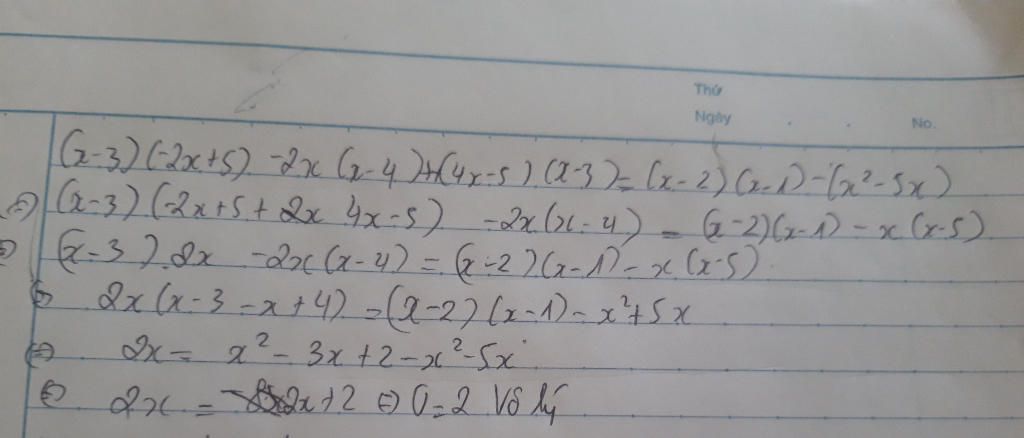 Thứ
Ngày
No.
(x-3)(-2x+5) -2x(x-4)+(4x-5)(x-3)=(x-2)(x-1)-(x²-5x)
⇔ (x-3)(-2x+5+2x 4x-5) -2x(x-4) = (x-2)(x-1)-x(x-5)
⇔ (x-3).2x -2x(x-4)=(x-2)(x-1)-x(x-5).
⇔ 2x(x-3-x+4)=(x-2)(x-1)-x²+5x
⇔ 2x= x²-3x+2-x²-5x
⇔ 2x = 2x+2 ⇔ 0=2 Vô lý